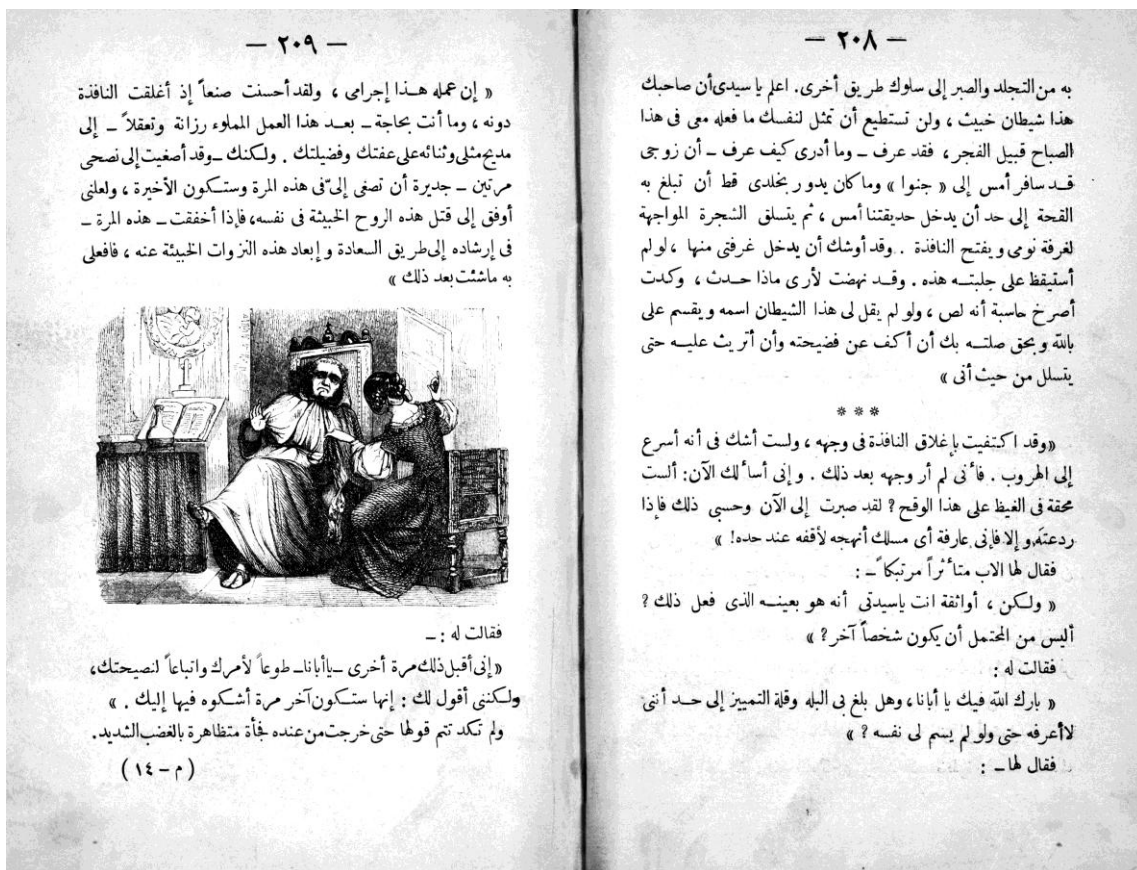 — ٢٠٨ —
به من التجلد والصبر إلى سلوك طريق أخرى. اعلم يا سيدى أن صاحبك
هذا شيطان خبيث ، ولن تستطيع أن تمثل لنفسك ما فعله معى فى هذا
الصباح قبيل الفجر ، فقد عرف – وما أدرى كيف عرف – أن زوجى
قد سافر أمس إلى « جنوا » وما كان يدور بخلدى قط أن تبلغ به
القحة إلى حد أن يدخل حديقتنا أمس ، ثم يتسلق الشجرة المواجهة
لغرفة نومى ويفتح النافذة . وقد أوشك أن يدخل غرفتى منها ، لو لم
أستيقظ على جلبته هذه . وقد نهضت لأرى ماذا حدث ، وكدت
أصرخ حاسبة أنه لص ، ولو لم يقل لى هذا الشيطان اسمه ويقسم على
بالله وبحق صلته بك أن أكف عن فضيحته وأن أتريث عليه حتى
يتسلل من حيث أتى »
* * *
«وقد اكتفيت بإغلاق النافذة فى وجهه ، ولست أشك فى أنه أسرع
إلى الهروب . فأنى لم أر وجهه بعد ذلك . وإنى أسألك الآن: ألست
محقة فى الغيظ على هذا الوقح ? لقد صبرت إلى الآن وحسبى ذلك فإذا
ردعته وإلا فإنى عارفة أى مسلك أنهجه لأقفه عند حده! »
فقال لها الاب متأثراً مرتبكاً – :
« ولكن ، أواثقة انت ياسيدتى أنه هو بعينه الذى فعل ذلك ?
أليس من المحتمل أن يكون شخصاً آخر ? »
فقالت له :
« بارك الله فيك يا أبانا ، وهل بلغ بى البله وقلة التمييز إلى حد أننى
لاأعرفه حتى ولو لم يسم لى نفسه ? »
فقال لها – :
— ٢٠٩ —
« إن عمله هذا إجرامى ، ولقد أحسنت صنعاً إذ أغلقت النافذة
دونه ، وما أنت بحاجة – بعد هذا العمل المملوء رزانة وتعقلاً – إلى
مديح مثلى وثنائه على عفتك وفضيلتك . ولكنك – وقد أصغيت إلى نصحى
مرتين – جديرة أن تصغى إلىّ فى هذه المرة وستكون الأخيرة ، ولعلنى
أوفق إلى قتل هذه الروح الخبيثة فى نفسه، فإذا أخفقت – هذه المرة –
فى إرشاده إلى طريق السعادة وإبعاد هذه النزوات الخبيثة عنه ، فافعلى
به ماشئت بعد ذلك »
فقالت له : –
«إنى أقبل ذلك مرة أخرى – ياأبانا – طوعاً لأمرك واتباعاً لنصيحتك،
ولكننى أقول لك : إنها ستكون آخر مرة أشكوه فيها إليك . »
ولم تكد تتم قولها حتى خرجت من عنده فجأة متظاهرة بالغضب الشديد.
( م – ١٤ )